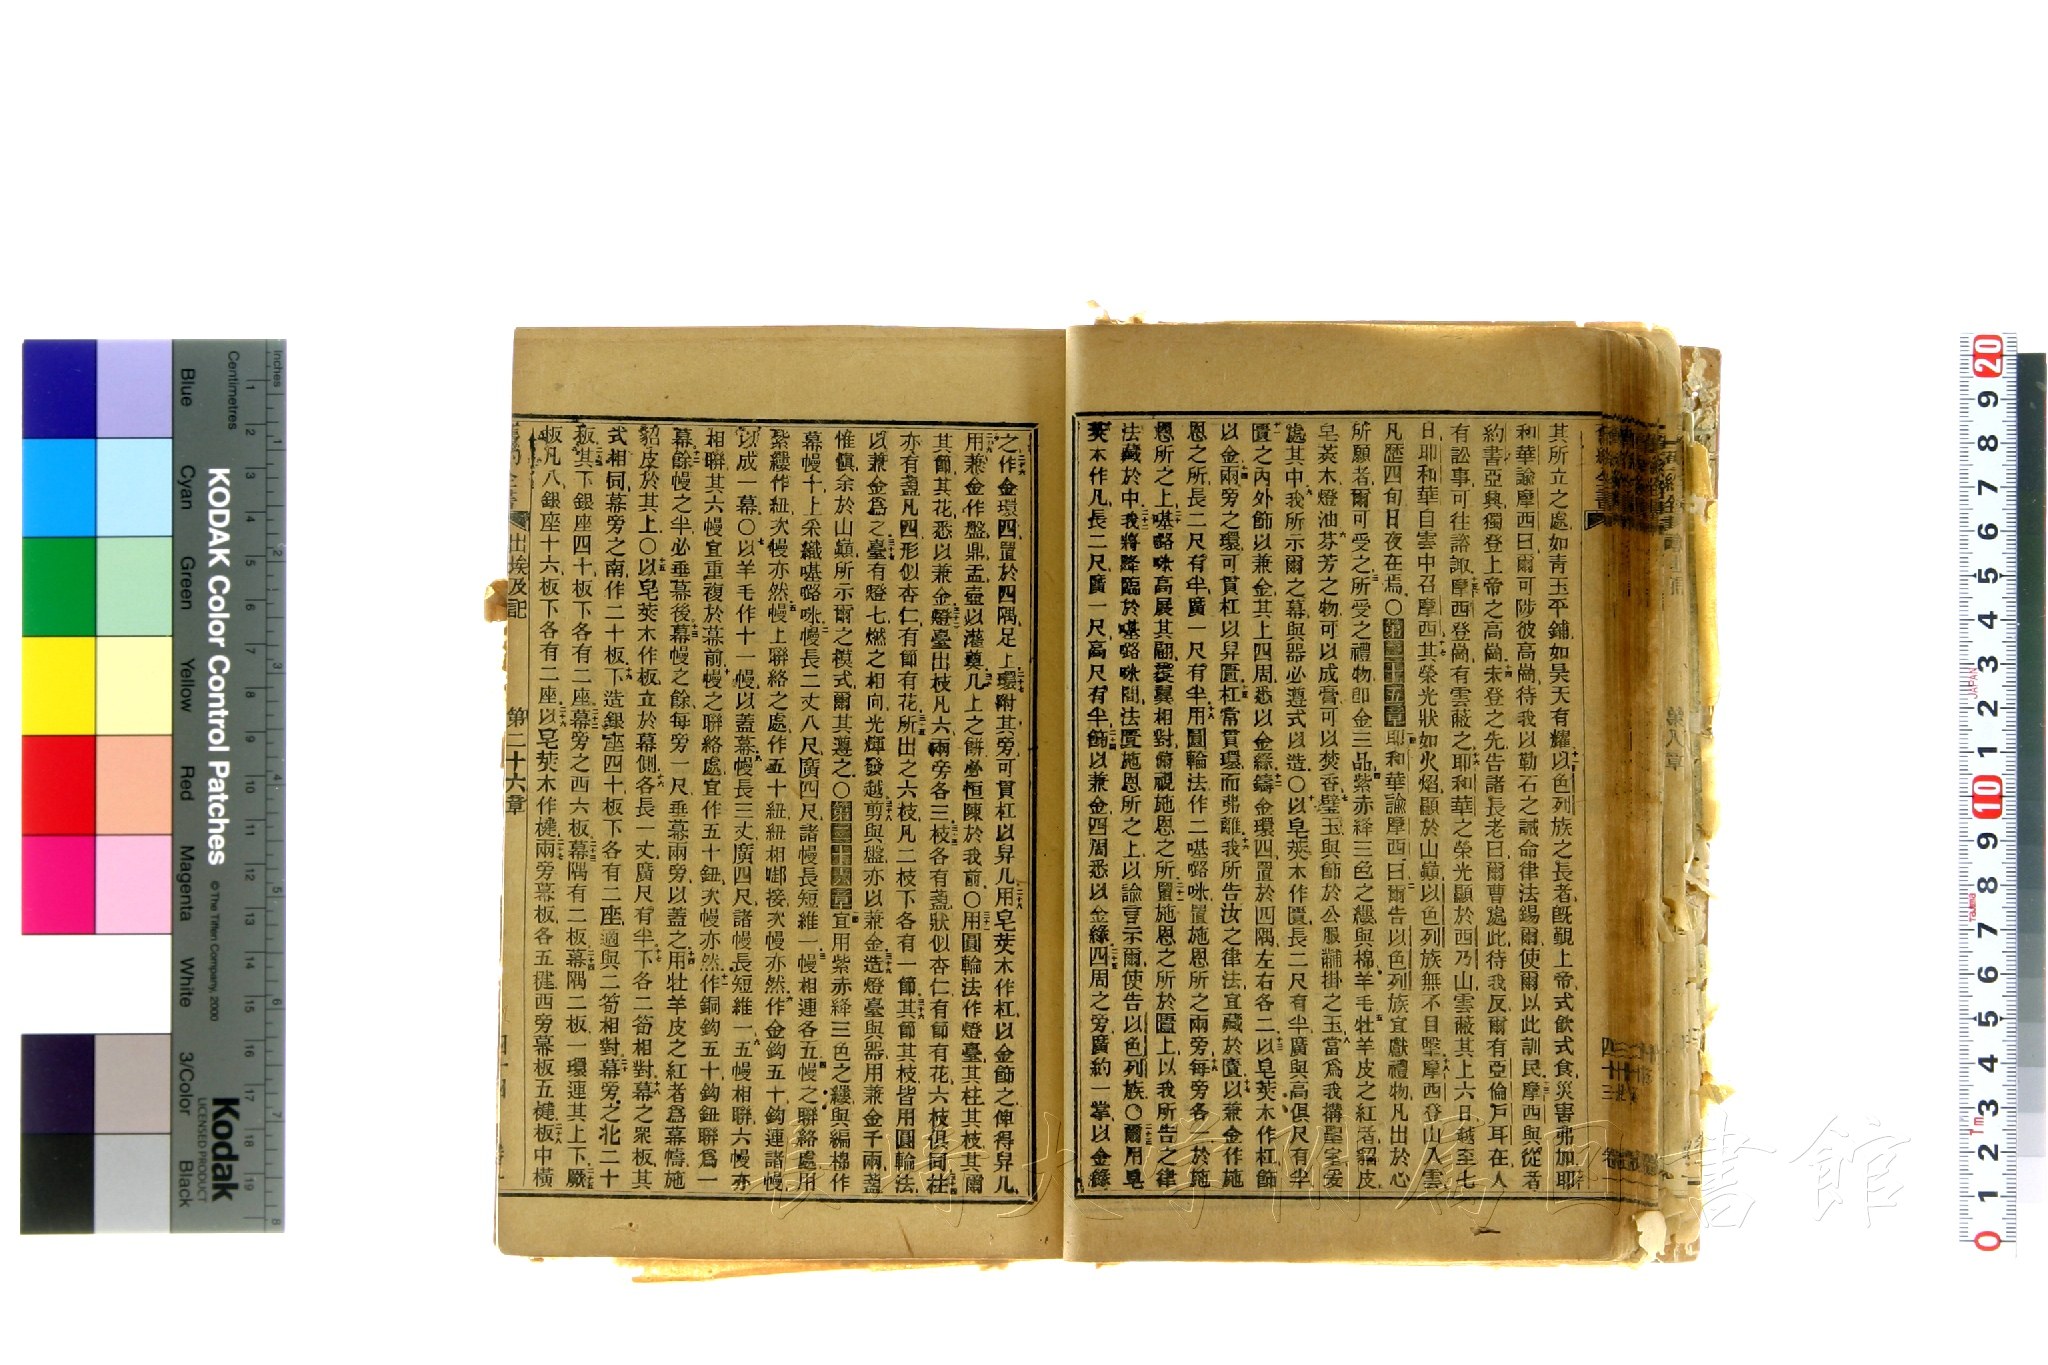 其所立之處如青玉平鋪如昊天有耀以色列族之長者旣覲上帝式飮式食災害弗加耶
和華諭摩西曰爾可陟彼高崗待我以勒石之誡命律法錫爾使爾以此訓民摩西與從者
約書亞興獨登上帝之高崗未登之先告諸長老曰爾曹處此待我反爾有亞倫戶耳在人
有訟事可往諮諏摩西登崗有雲蔽之耶和華之榮光顯於西乃山雲蔽其上六日越至七
日耶和華自雲中召摩西其榮光狀如火焰顯於山巔以色列族無不目擊摩西登山入雲
凡歷四旬日夜在焉○第二十五章耶和華諭摩西曰爾告以色列族宜獻禮物凡出於心
所願者爾可受之所受之禮物卽金三品紫赤絳三色之縷與棉羊毛牡羊皮之紅者貂皮
皂莢木燈油芬芳之物可以成膏可以焚香璧玉與飾於公服黼掛之玉當爲我搆聖室妥
處其中我所示爾之幕與器必遵式以造○以皂莢木作匱長二尺有半廣與高俱尺有半
匱之內外飾以兼金其上四周悉以金緣鑄金環四置於四隅左右各二以皂莢木作杠飾
以金兩旁之環可貫杠以舁匱杠當貫環而弗離我所告汝之律法宜藏於匱以兼金作施
恩之所長二尺有半廣一尺有半用圓輪法作二𠼻㗉咏置施恩所之兩旁每旁各一於施
恩所之上𠼻㗉咏高展其翮覆翼相對俯視施恩之所置施恩之所於匱上以我所告之律
法藏於中我將降臨於𠼻㗉咏間法匱施恩所之上以諭言示爾使告以色列族○爾用皂
莢木作几長二尺廣一尺高尺有半飾以兼金四周悉以金緣四周之旁廣約一掌以金緣
四十三
之作金環四置於四隅足上環附其旁可貫杠以舁几用皂莢木作杠以金飾之俾得舁几
用兼金作盤鼎盂壺以灌奠几上之餅必恒陳於我前○用圓輪法作燈臺其柱其枝其爾
其節其花悉以兼金燈臺出枝凡六兩旁各三枝各有盞狀似杏仁有節有花六枝俱同柱
亦有盞凡四形似杏仁有節有花所出之六枝凡二枝下各有一節其節其枝皆用圓輪法
以兼金爲之臺有燈七燃之相向光輝發越剪與盤亦以兼金造燈臺與器用兼金子兩盞
惟愼余於山巔所示爾之模式爾其遵之○第二十六章宜用紫赤絳三色之縷與編棉作
幕幔十上采織𠼻㗉咏幔長二丈八尺廣四尺諸幔長短維一幔相連各五幔之聯絡處用
紫縷作紐次幔亦然幔上聯絡之處作五十紐紐相啣接次幔亦然作金鈎五十鈎連諸幔
以成一幕○以羊毛作十一幔以蓋幕幔長三丈廣四尺諸幔長短維一五幔相聯六幔亦
相聯其六幔宜重複於幕前幔之聯絡處宜作五十鈕次幔亦然作銅鈎五十鈎鈕聯爲一
幕餘幔之半必垂幕後幕幔之餘每旁一尺垂幕兩旁以蓋之用牡羊皮之紅者爲幕幬施
貂皮於其上○以皂莢木作板立於幕側各長一丈廣尺有半下各二筍相對幕之衆板其
式相同幕旁之南作二十板下造銀座四十板下各有二座適與二筍相對幕旁之北二十
板其下銀座四十板下各有二座幕旁之西六板幕隅有二板幕隅二板一環連其上下厥
板凡八銀座十六板下各有二座以皂莢木作楗兩旁幕板各五楗西旁幕板五楗板中橫
出埃及記 第二十六章 四十四
KODAK Color Control Patches
© The Tiffen Company, 2000
Kodak
LICENSED PRODUCT
Inches
Centimetres
Blue Cyan Green Yellow Red Magenta White 3/Color Black
長崎大学附属図書館